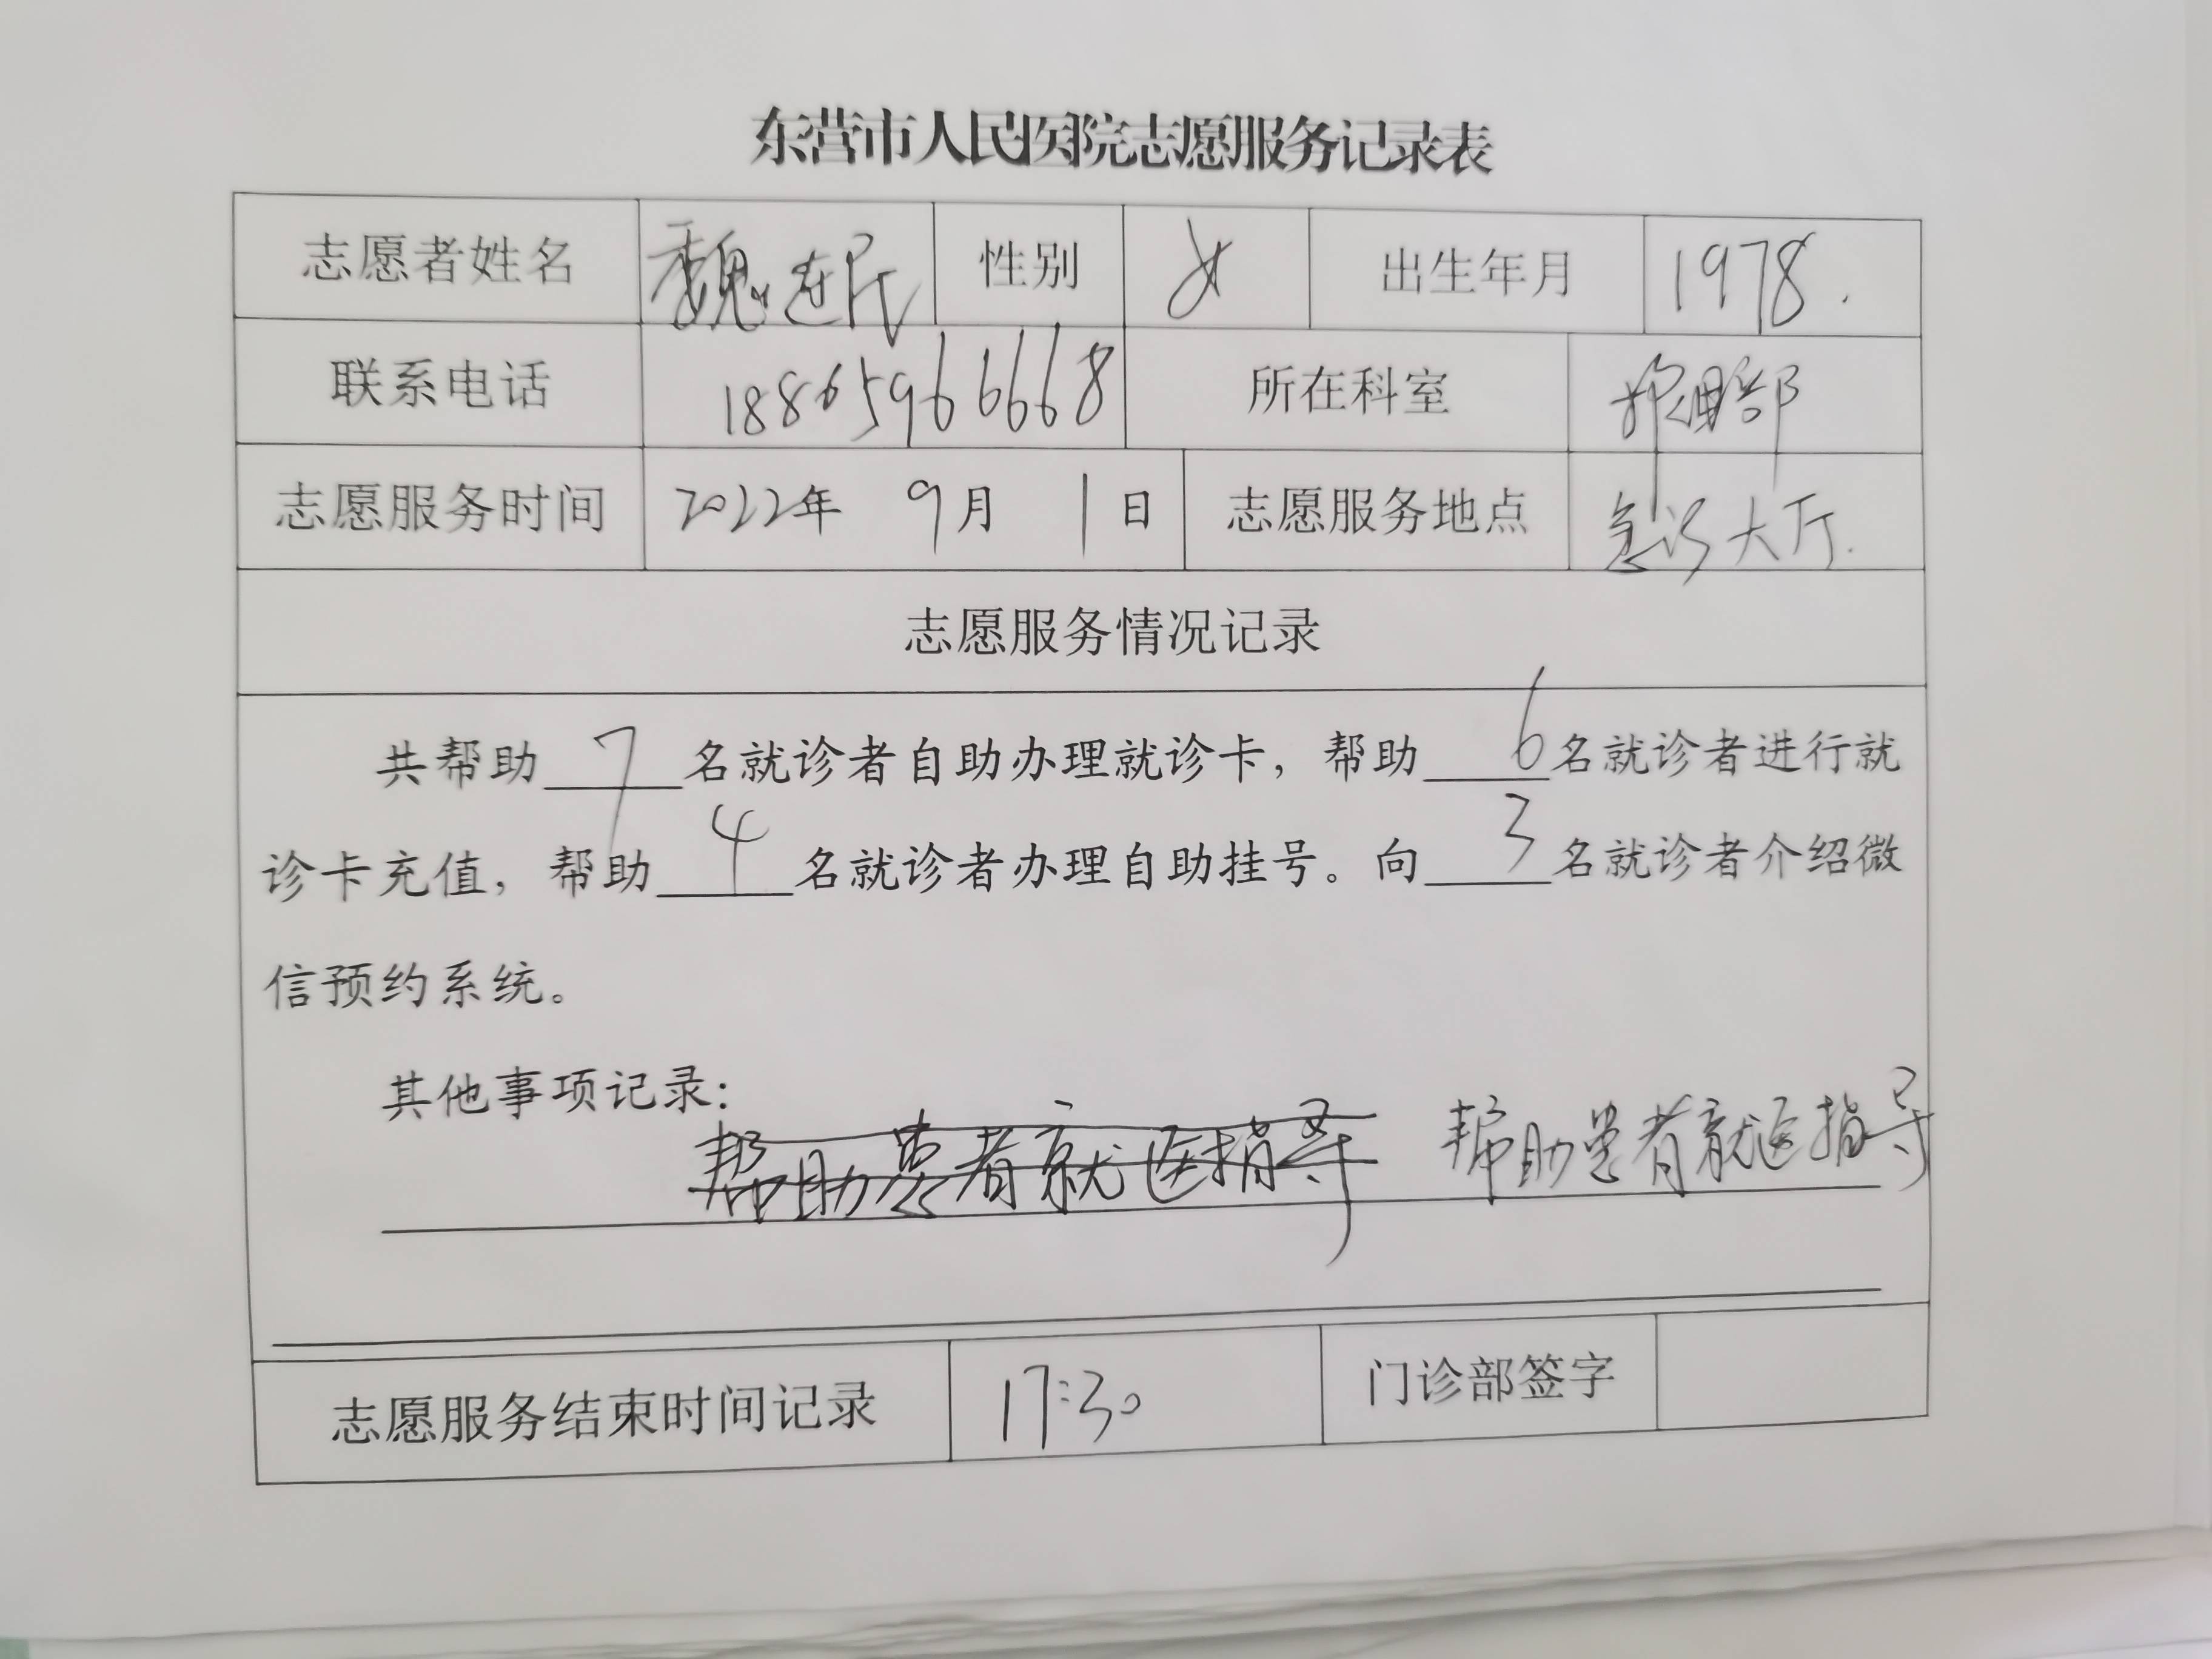 东营市人民医院志愿服务记录表
志愿者姓名 魏连民 性别 女 出生年月 1978.
联系电话 18865966668 所在科室
志愿服务时间 2022年 9月 1日 志愿服务地点 急诊大厅.
志愿服务情况记录
共帮助 7 名就诊者自助办理就诊卡，帮助 6 名就诊者进行就
诊卡充值，帮助 4 名就诊者办理自助挂号。向 3 名就诊者介绍微
信预约系统。
其他事项记录：
帮助患者就医指导 帮助患者就医指导
志愿服务结束时间记录 17:30 门诊部签字